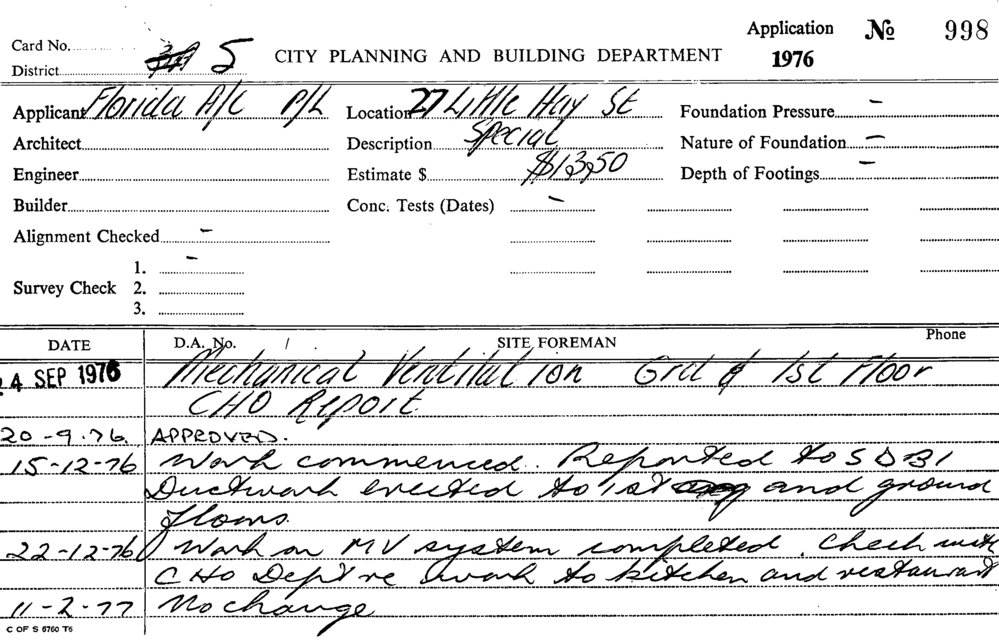 Application № 998
Card No.
District 5 CITY PLANNING AND BUILDING DEPARTMENT 1976
Applicant Florida A/c P/L Location 27 Little Hay St Foundation Pressure –
Architect Description Special Nature of Foundation –
Engineer Estimate $ Depth of Footings –
Builder Conc. Tests (Dates) –
Alignment Checked –
1. –
Survey Check 2.
3.
DATE D.A. No. / SITE FOREMAN Phone
4 SEP 1976 Mechanical Ventilation Grd & 1st Floor
CHO Report
20-9-76 APPROVED.
15-12-76 Work commenced. Reported to SDBI
Ductwork erected to 1st and ground
floors.
22-12-76 Work on MV system completed. Check with
CHO Dep't re work to kitchen and restaurant
11-2-77 No change
C OF S 6760 T6